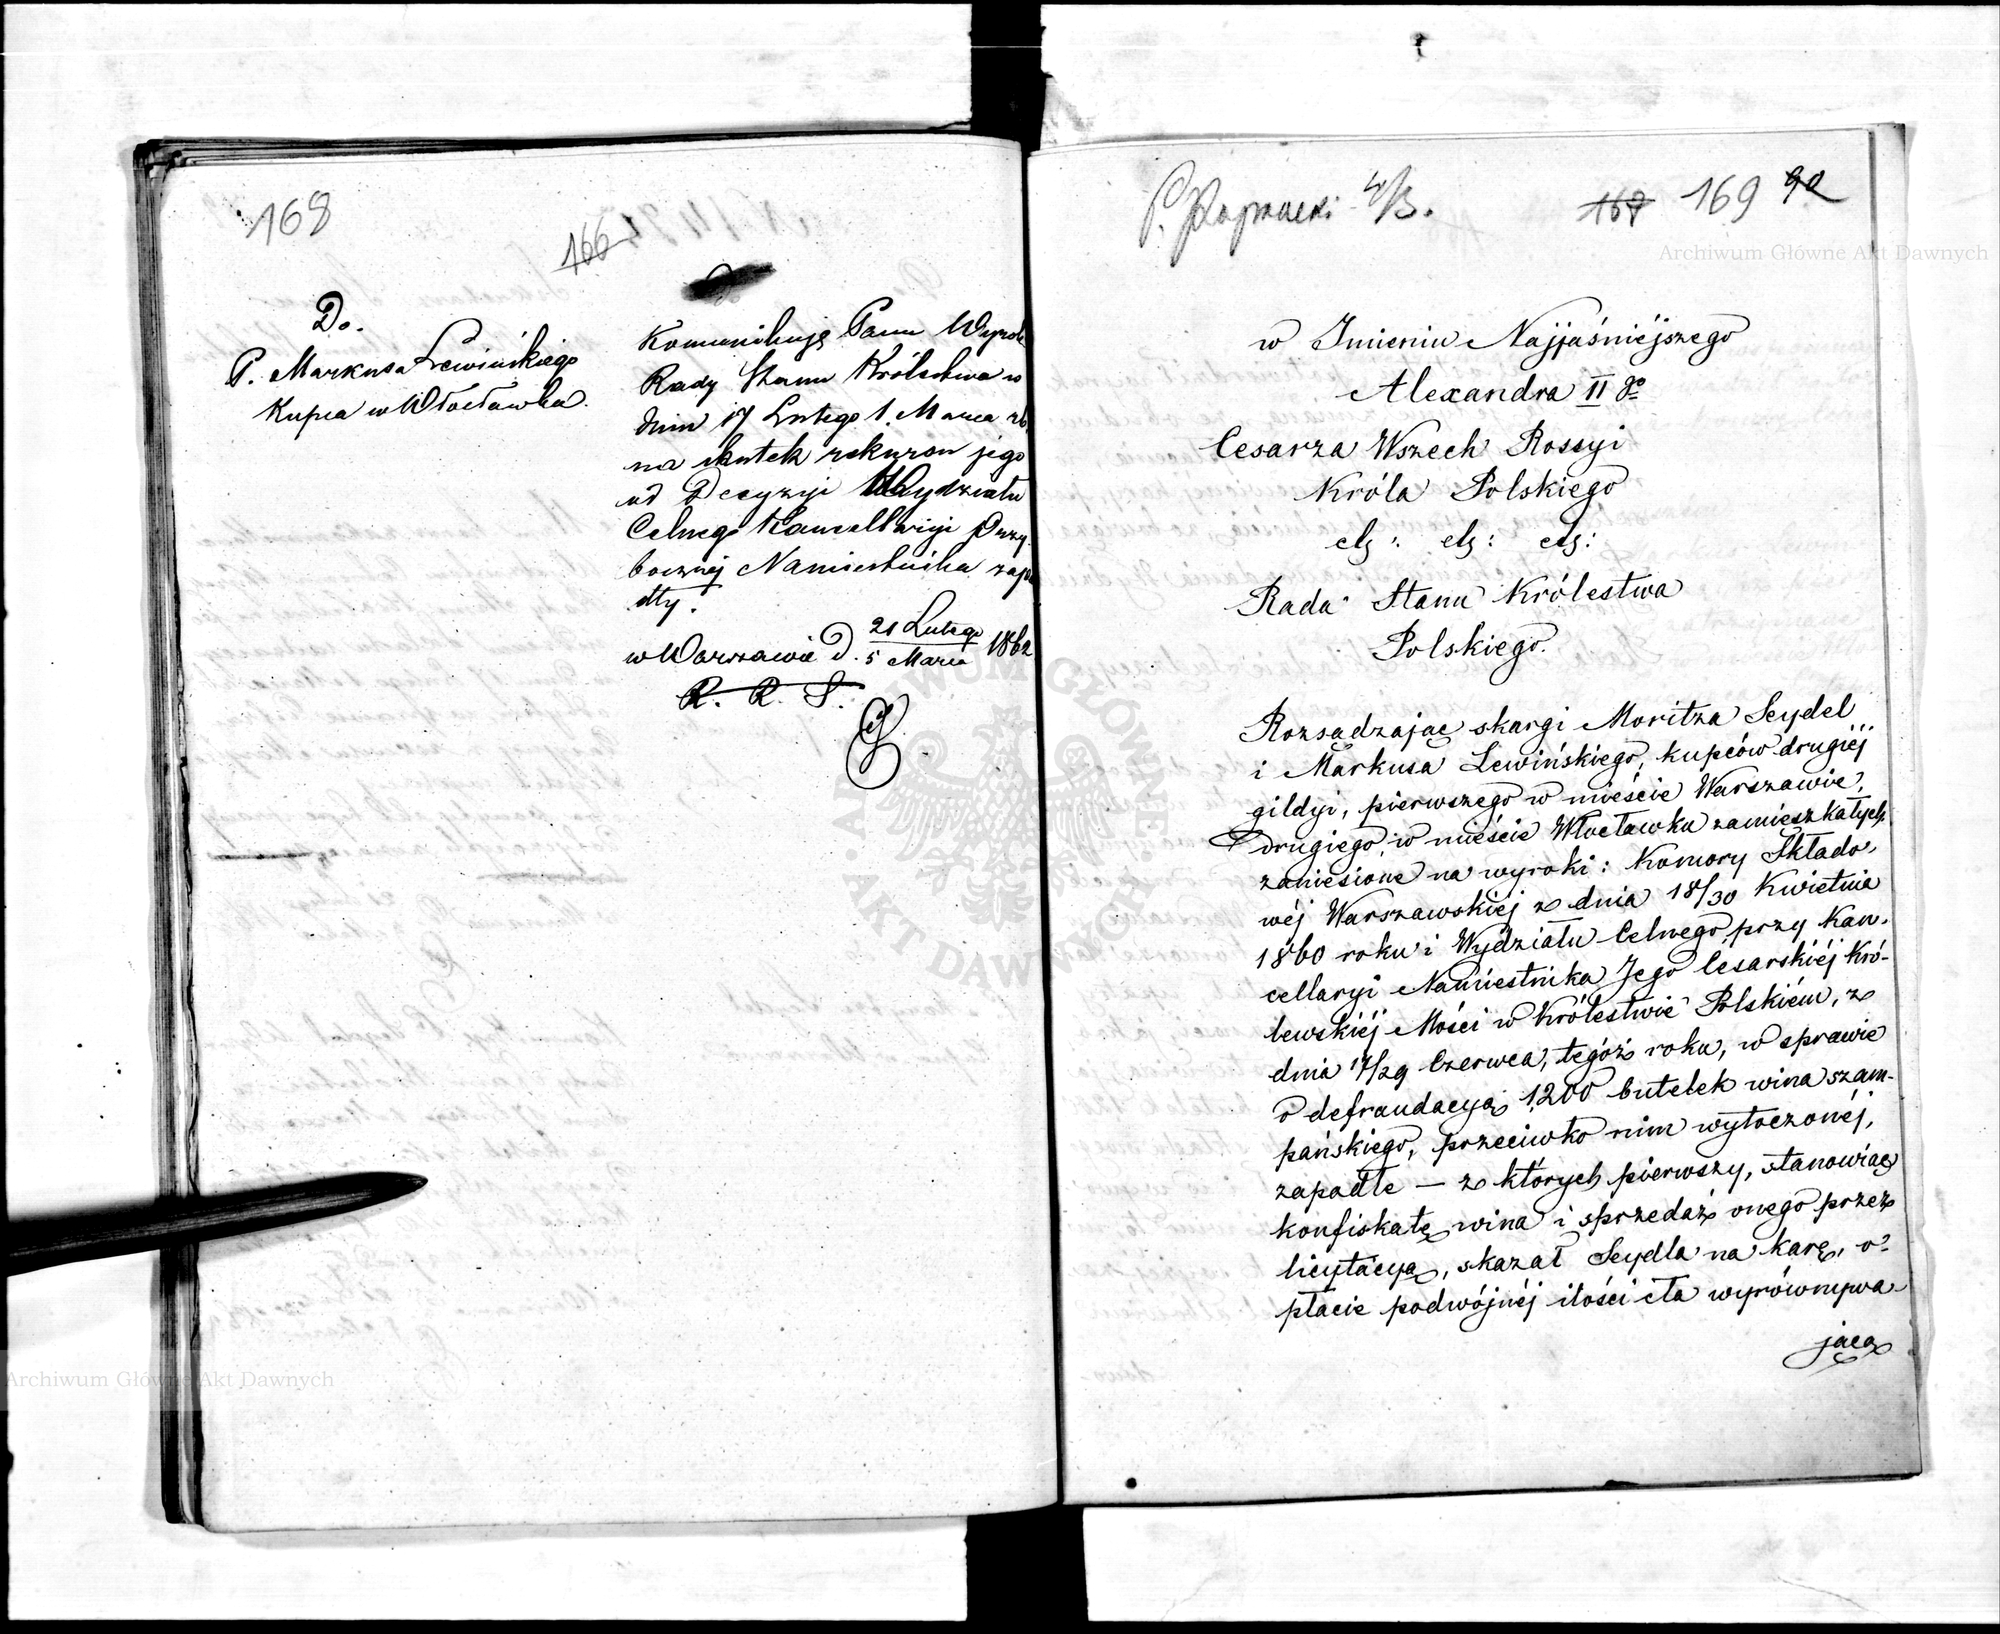 168
166
Do.
P. Markusa Lewińskiego
Kupca w Włocławku.
Komunikuję Panu Wyrok
Rady Stanu Królestwa w
dniu 17 Lutego 1. Marca rb.
na skutek rekursu jego
od Decyzyi Wydziału
Celnego Kancellaryi Przy-
bocznej Namiestnika zapa
dły.
w Warszawie d. 21 Lutego / 5 Marca 1862
R. R. S.
4/3.
167 169 90
w Imieniu Najjaśniéjszego
Alexandra II go
Cesarza Wszech Rossyi
Króla Polskiego
etc: etc: etc:
Rada Stanu Królestwa
Polskiego.
Rozsądzając skargi Moritza Seydel
i Markusa Lewińskiego, kupców drugiéj
gildyi, pierwszego w mieście Warszawie,
drugiego, w mieście Włocławku zamieszkałych,
zaniesione na wyroki: Komory Składo-
wéj Warszawskiéj z dnia 18/30 Kwietnia
1860 roku i Wydziału Celnego przy Kan-
cellaryi Namiestnika Jego Cesarskiéj Kró-
lewskiéj Mości w Królestwie Polskiém, z
dnia 17/29 Czerwca, tegóż roku, w sprawie
o defraudacyą 1200 butelek wina szam-
pańskiego, przeciwko nim wytoczonéj,
zapadłe — z których pierwszy, stanowiąc
konfiskatę wina i sprzedaż onego przez
licytacyą, skazał Seydla na karę, o-
płacie podwójnéj ilości cła wyrównywa-
jącą
Archiwum Główne Akt Dawnych
Archiwum Główne Akt Dawnych